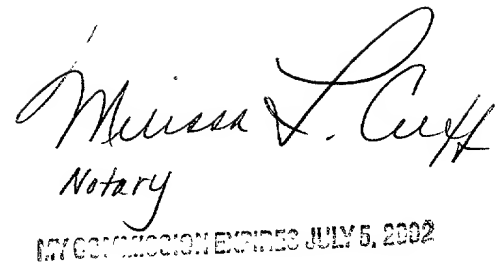 Melissa L. Cuff
Notary
MY COMMISSION EXPIRES JULY 5, 2002